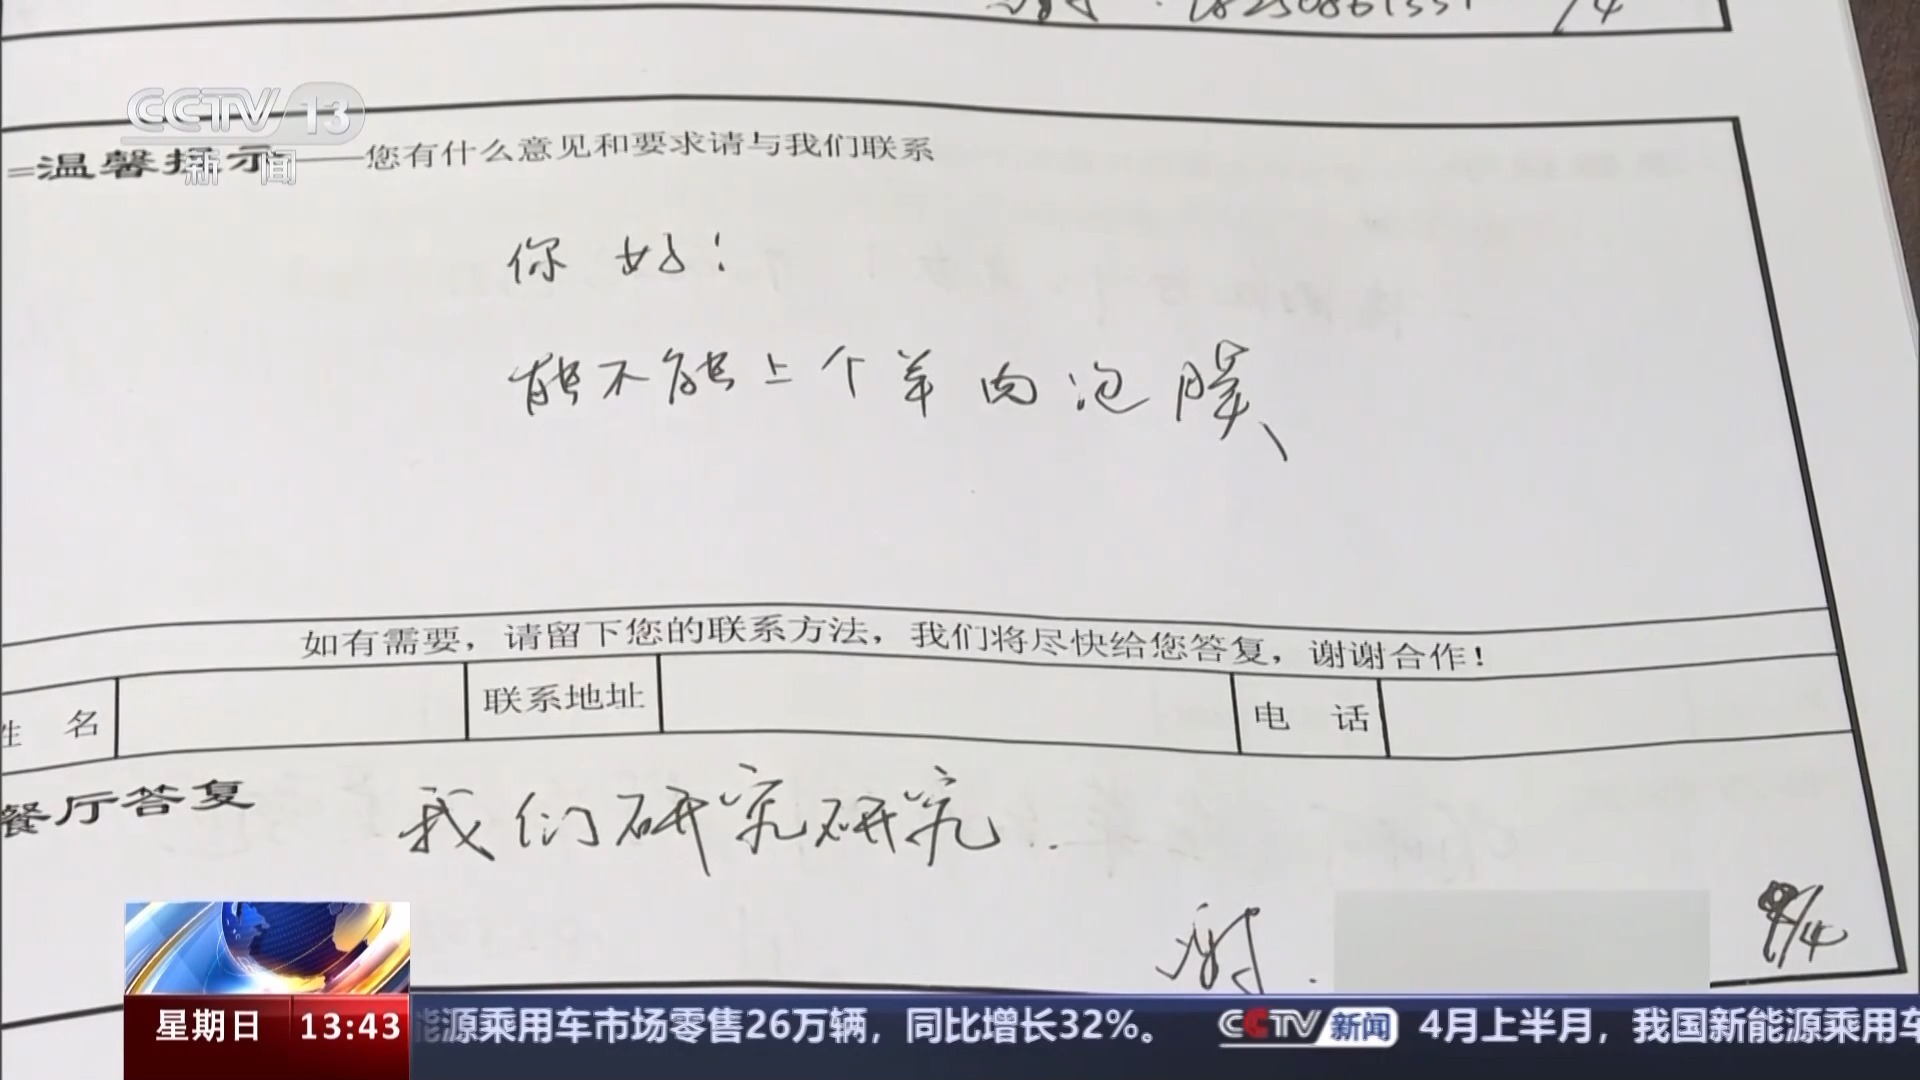 CCTV 13
新闻
=温馨提示——您有什么意见和要求请与我们联系
你好！
能不能上个羊肉泡膜
如有需要，请留下您的联系方法，我们将尽快给您答复，谢谢合作！
姓 名 联系地址 电 话
餐厅答复 我们研究研究.
谢 . 9/4
星期日 13:43 能源乘用车市场零售26万辆，同比增长32%。 CCTV 新闻 4月上半月，我国新能源乘用车